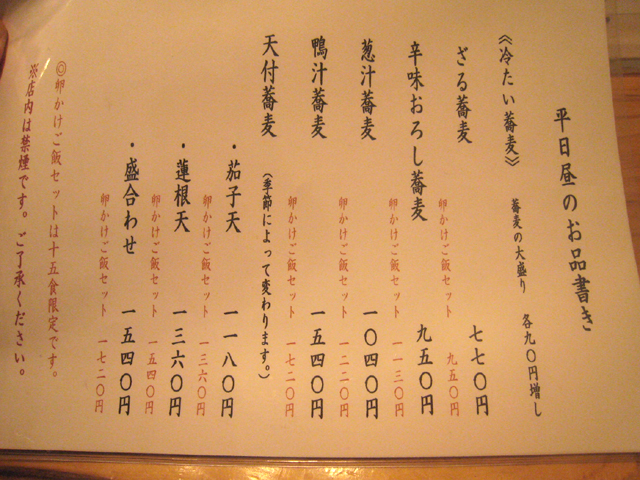 平日昼のお品書き
《冷たい蕎麦》 蕎麦の大盛り 各九〇円増し
ざる蕎麦 七七〇円
卵かけご飯セット 九五〇円
辛味おろし蕎麦 九五〇円
卵かけご飯セット 一一三〇円
葱汁蕎麦 一〇四〇円
卵かけご飯セット 一二二〇円
鴨汁蕎麦 一五四〇円
卵かけご飯セット 一七二〇円
天付蕎麦 (季節によって変わります。)
・茄子天 一一八〇円
卵かけご飯セット 一三六〇円
・蓮根天 一三六〇円
卵かけご飯セット 一五四〇円
・盛合わせ 一五四〇円
卵かけご飯セット 一七二〇円
◎卵かけご飯セットは十五食限定です。
※店内は禁煙です。ご了承ください。